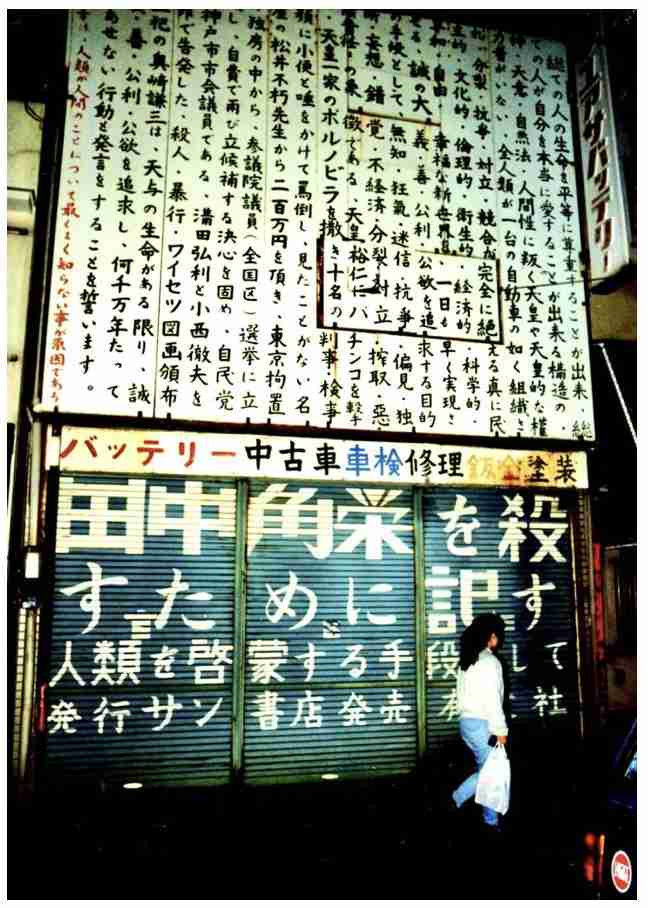 総ての人の生命を平等に尊重することが出来、総
ての人が自分を本当に愛することが出来る構造の、
神・天意・自然法・人間性に叛く天皇や天皇的な権
力者がいない、全人類が一台の自動車の如く組織さ
分裂・抗争・対立・競合が完全に絶える真に民
主的・文化的・倫理的・衛生的・経済的・科学的・
和・自由・幸福な新世界を、一日も早く実現さ
せる、誠の大、義・善・公利・公欲を追求する目的
の手段として、無知・狂氣・迷信・抗争・偏見・独
断・妄想・錯覚・不経済・分裂・対立・搾取・悪
責任の象徴である、天皇裕仁にパチンコを撃
・天皇一家のポルノビラを撒き十名の判事・検事
頭に小便と唾をかけて罵倒し、見たことがない名
屋の松井不朽先生から二百万円を頂き、東京拘置
独房の中から、参議院議員(全国区)選挙に立
し、自費で再び立候補する決心を固め、自民党
神戸市市会議員である、溝田弘利と小西徹夫を
で告発した、殺人・暴行・ワイセツ図画頒布
犯の奥崎謙三は、天与の生命がある限り、誠
・善・公利・公欲を追求し、何千万年たって
あせない行動と発言をすることを誓います。
人類が人間のことについて最もよく知らない事が原因であろう
アサバッテリー
バッテリー中古車車検修理鈑金塗装
田中角栄を殺
すために記す
人類を啓蒙する手段して
発行サン書店発売 社